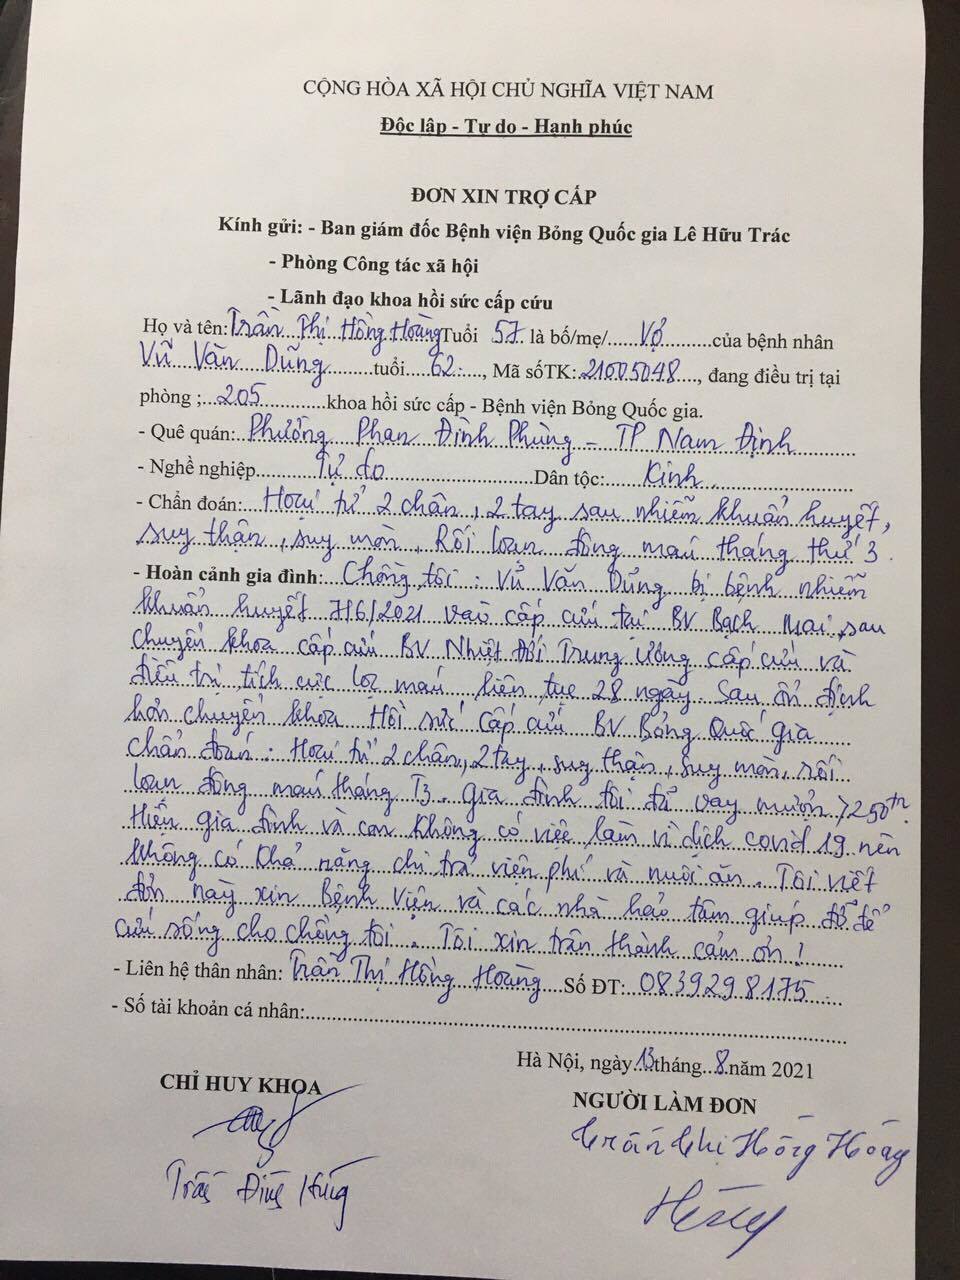 CỘNG HÒA XÃ HỘI CHỦ NGHĨA VIỆT NAM
Độc lập - Tự do - Hạnh phúc
ĐƠN XIN TRỢ CẤP
Kính gửi: - Ban giám đốc Bệnh viện Bỏng Quốc gia Lê Hữu Trác
- Phòng Công tác xã hội
- Lãnh đạo khoa hồi sức cấp cứu
Họ và tên: Trần Thị Hồng Hoàng Tuổi 57 là bố/mẹ/ Vợ của bệnh nhân
Vũ Văn Dũng tuổi 62, Mã sốTK: 21005048, đang điều trị tại
phòng ; 205 khoa hồi sức cấp - Bệnh viện Bỏng Quốc gia.
- Quê quán: Phường Phan Đình Phùng - TP Nam Định
- Nghề nghiệp Tự do Dân tộc: Kinh
- Chẩn đoán: Hoại tử 2 chân, 2 tay sau nhiễm khuẩn huyết,
suy thận, suy mòn, Rối loạn đông máu tháng thứ 3.
- Hoàn cảnh gia đình: Chồng tôi: Vũ Văn Dũng bị bệnh nhiễm
khuẩn huyết 7/6/2021 vào cấp cứu tại BV Bạch Mai, sau
chuyển khoa cấp cứu BV Nhiệt Đới Trung ương cấp cứu và
điều trị tích cực lọc máu liên tục 28 ngày. Sau ổn định
hơn chuyển khoa Hồi sức cấp cứu BV Bỏng Quốc gia
chẩn đoán: Hoại tử 2 chân, 2 tay, suy thận, suy mòn, rối
loạn đông máu tháng T3. Gia đình tôi đã vay mượn >250tr.
Hiện gia đình và con không có việc làm vì dịch covid 19 nên
không có khả năng chi trả viện phí và nuôi ăn. Tôi viết
đơn này xin Bệnh Viện và các nhà hảo tâm giúp đỡ để
cứu sống cho chồng tôi. Tôi xin trân thành cảm ơn!
- Liên hệ thân nhân: Trần Thị Hồng Hoàng Số ĐT: 0839298175
- Số tài khoản cá nhân:
Hà Nội, ngày 13 tháng 8 năm 2021
CHỈ HUY KHOA
NGƯỜI LÀM ĐƠN
Trần Thị Hồng Hoàng
Trần Đình Hùng